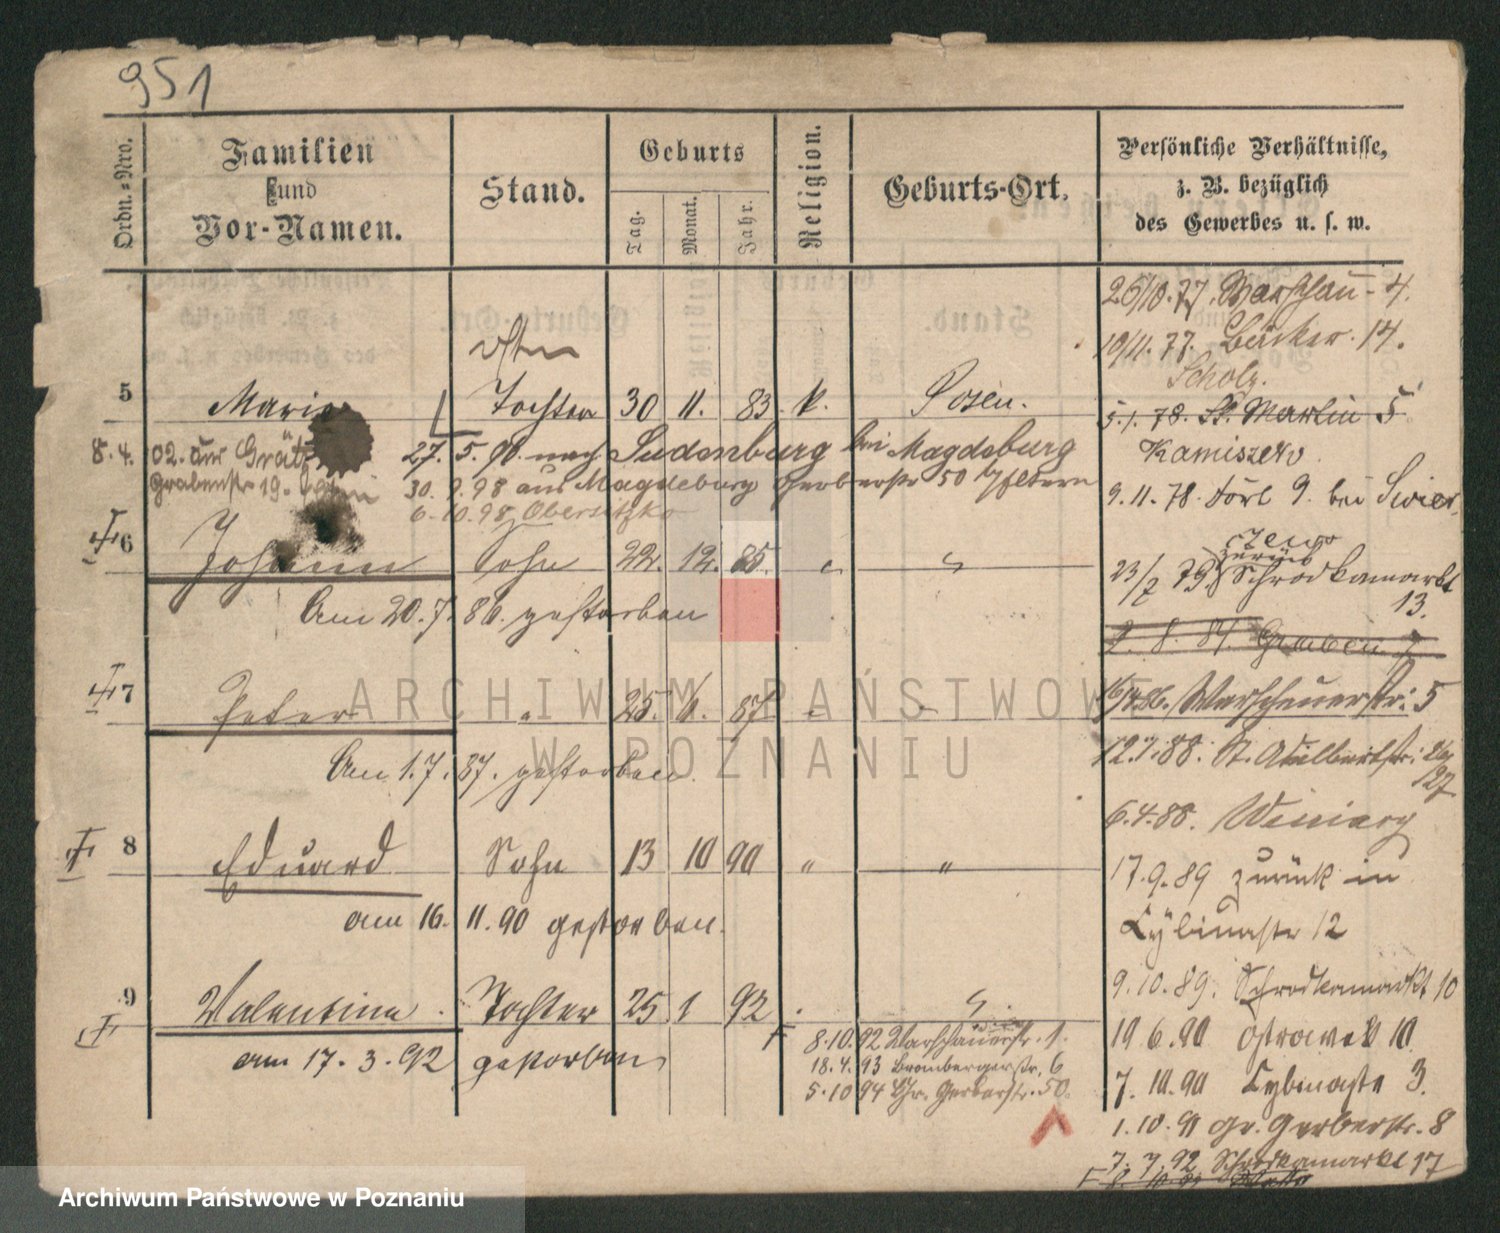 951
Ordn.-Nro.
Familien
und
Vor-Namen.
Stand.
Geburts
Tag.
Monat.
Jahr.
Religion.
Geburts-Ort.
Persönliche Verhältnisse,
z. B. bezüglich
des Gewerbes u. s. w.
5 Marie Tochter 30 11. 83. k. Posen.
8.4. 02. aus Grätz
Grabenstr 19.
27. 5. 98. nach Sudenburg bei Magdeburg
30. 9. 98 aus Magdeburg Gerberstr 50 b/Eltern
6. 10. 98 Obersitzko
6 Johann Sohn 22. 12. 85. " "
Am 20. 7. 86. gestorben
7 Peter " 25. 6. 87. " "
Am 1. 7. 87. gestorben.
8 Eduard Sohn 13 10 90 " "
am 16. 11. 90 gestorben.
9 Valentina. Tochter 25 1 92 "
am 17. 3. 92 gestorben
8. 10. 92 Warschauerstr. 1.
18. 4. 93 Brombergerstr. 6
5. 10 94 Gr. Gerberstr. 50.
26/10. 77. Warschau- 4.
10/11. 77. Bäcker. 14.
Scholz.
5. 1. 78. St. Martin 5
Kamiszew.
9. 11. 78. 9. bei Swier-
czewo
zurück
23/7 79. Schrodkamarkt
13.
2. 8. 84. Graben 7
16/4. 86. Warschauerstr. 5
12. 1. 88. St. Adalbertstr. 26/
127
6. 4. 88. Winiary
17. 9. 89 zurück in
Cybinastr 12
9. 10. 89. Schrodkamarkt 10
10 6. 90 Ostrowek 10.
7. 10. 90 Cybinastr 3.
1. 10. 91 Gr. Gerberstr. 8
7. 7. 92 Schrodkamarkt 17
ARCHIWUM PAŃSTWOWE
W POZNANIU
Archiwum Państwowe w Poznaniu